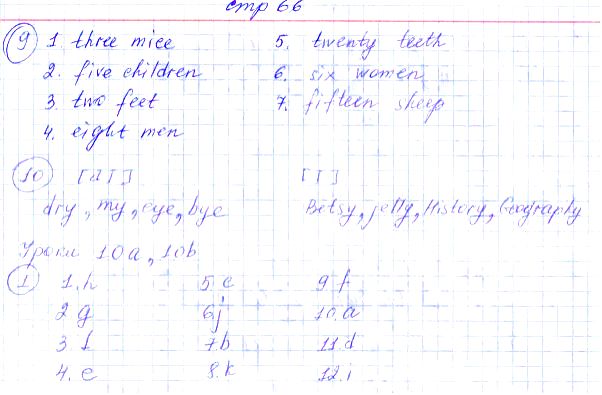 стр 66
9 1. three mice 5. twenty teeth
2. five children 6. six women
3. two feet 7. fifteen sheep
4. eight men
10 [aI] [I]
dry, my, eye, bye Betsy, jelly, History, Geography
Уроки 10a, 10b
1 1. h 5. c 9 f
2 g 6. j 10. a
3 l 7 b 11. d
4. e 8. k 12. i